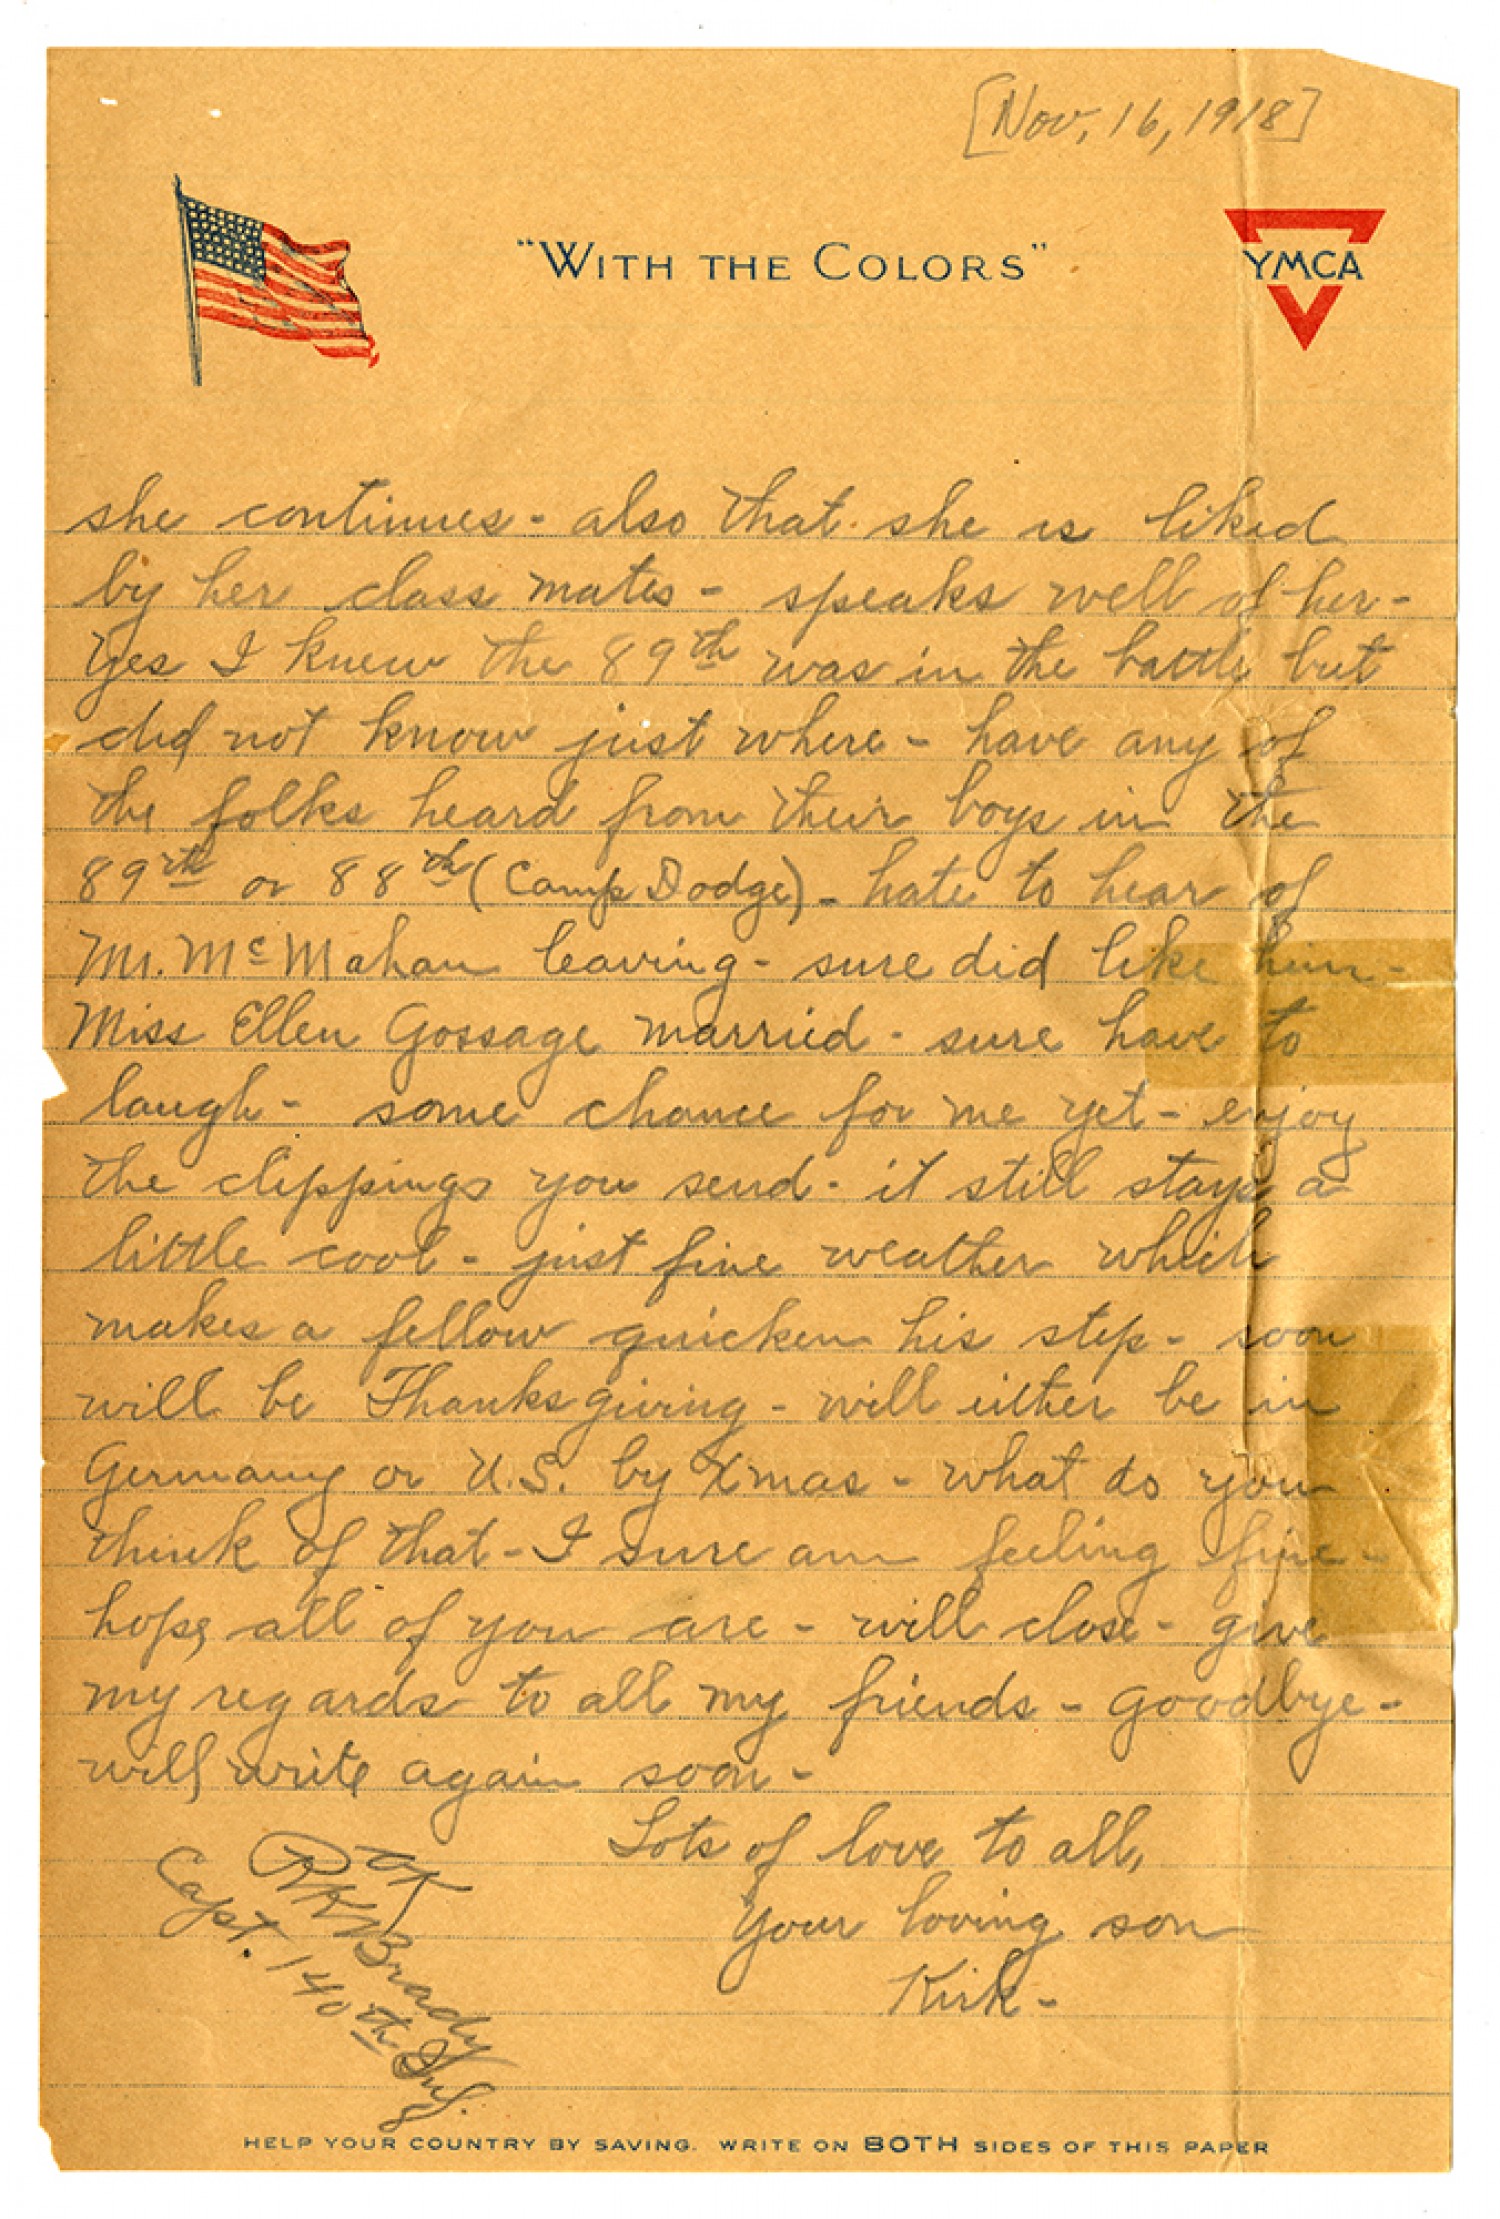 [Nov, 16, 1918]
"WITH THE COLORS"
YMCA
she continues - also that she is liked
by her class mates - speaks well of her -
Yes I knew the 89th was in the battle but
did not know just where - have any of
the folks heard from their boys in the
89th or 88th (Camp Dodge) - hate to hear of
Mr. McMahan leaving - sure did like him -
Miss Ellen Gossage married - sure have to
laugh - some chance for me yet - enjoy
the clippings you send - it still stays a
little cool - just fine weather which
makes a fellow quicken his step - soon
will be Thanksgiving - will either be in
Germany or U.S. by Xmas - what do you
think of that - I sure am feeling fine -
hope all of you are - will close - give
my regards to all my friends - Goodbye -
will write again soon -
Lots of love to all,
Your loving son
Kirk -
OK
Brady
Capt. 140th Inf.
HELP YOUR COUNTRY BY SAVING. WRITE ON BOTH SIDES OF THIS PAPER